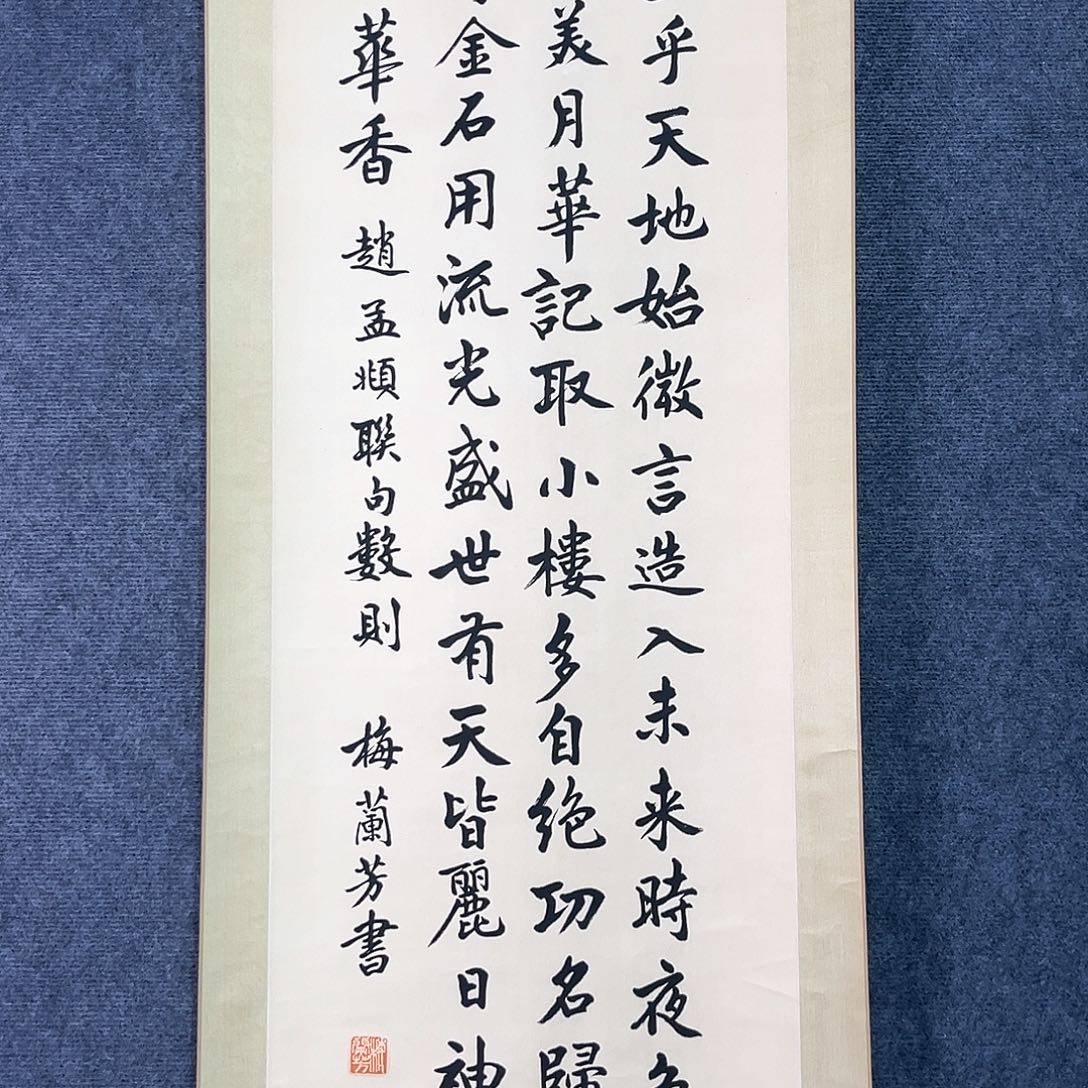 乎天地始微言造入未来時夜
美月華記取小樓多自絶功名歸
金石用流光盛世有天皆麗日神
華香 趙孟頫聯句數則 梅蘭芳書